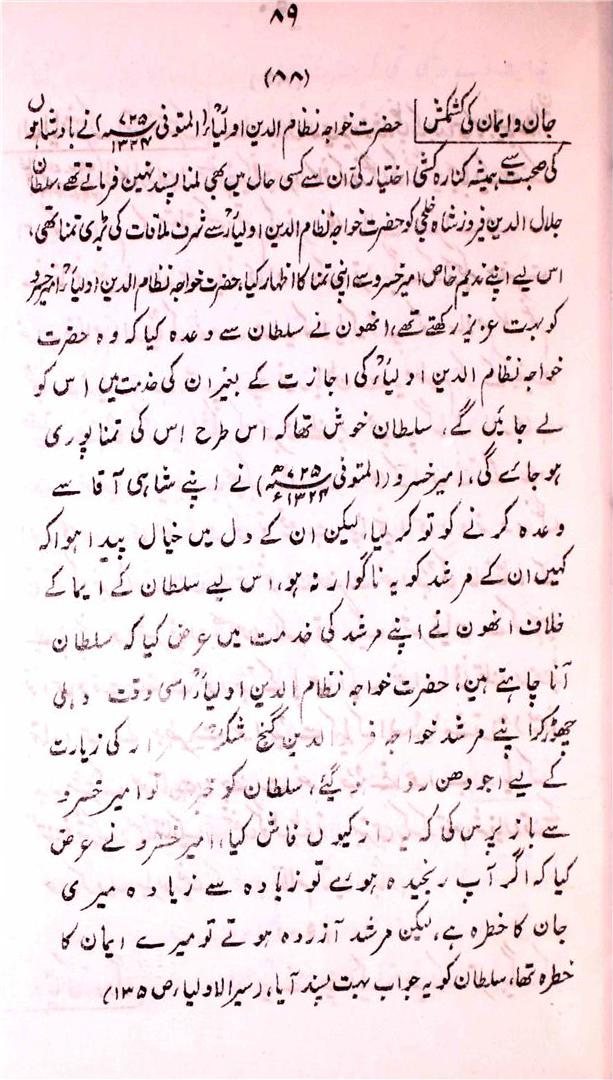 ۸۹
(۸۸)
جان و ایمان کی کشمکش | حضرت خواجہ نظام الدین اولیاؒء (المتوفی ۷۲۵ھ ۱۳۲۴ء) نے بادشاہوں
کی صحبت سے ہمیشہ کنارہ کشی اختیار کی ان سے کسی حال میں بھی ملنا پسند نہین فرماتے تھے، سلطان
جلال الدین فیروز شاہ خلجی کو حضرت خواجہ نظام الدین اولیاؒء سے شرف ملاقات کی بڑی تمنا تھی،
اس لیے اپنے ندیم خاص امیر خسرو سے اپنی تمنا کا اظہار کیا، حضرت خواجہ نظام الدین اولیاؒء امیر خسرو
کو بہت عزیز رکھتے تھے، انھون نے سلطان سے وعدہ کیا کہ وہ حضرت
خواجہ نظام الدین اولیاؒء کی اجازت کے بغیر ان کی خدمت میں اس کو
لے جائیں گے، سلطان خوش تھا کہ اس طرح اس کی تمنا پوری
ہو جائے گی، امیر خسرو (المتوفی ۷۲۵ھ ۱۳۲۴ء) نے اپنے شاہی آقا سے
وعدہ کرنے کو تو کر لیا، لیکن ان کے دل میں خیال پیدا ہوا کہ
کہیں ان کے مرشد کو یہ ناگوار نہ ہو، اس لیے سلطان کے ایما کے
خلاف انھون نے اپنے مرشد کی خدمت میں عرض کیا کہ سلطان
آنا چاہتے ہین، حضرت خواجہ نظام الدین اولیاؒء اسی وقت دہلی
چھوڑ کر اپنے مرشد خواجہ الدین گنج شکرؒ کی زیارت
کے لیے اجودھن گئے، سلطان کو تو امیر خسرو
سے باز پرس کی کہ کیوں فاش کیا، امیر خسرو نے عرض
کیا کہ اگر آپ رنجیدہ ہوے تو زیادہ سے زیادہ میری
جان کا خطرہ ہے، لیکن مرشد آزردہ ہوتے تو میرے ایمان کا
خطرہ تھا، سلطان کو یہ جواب بہت پسند آیا، (سیر الاولیاء ص ۱۳۵)